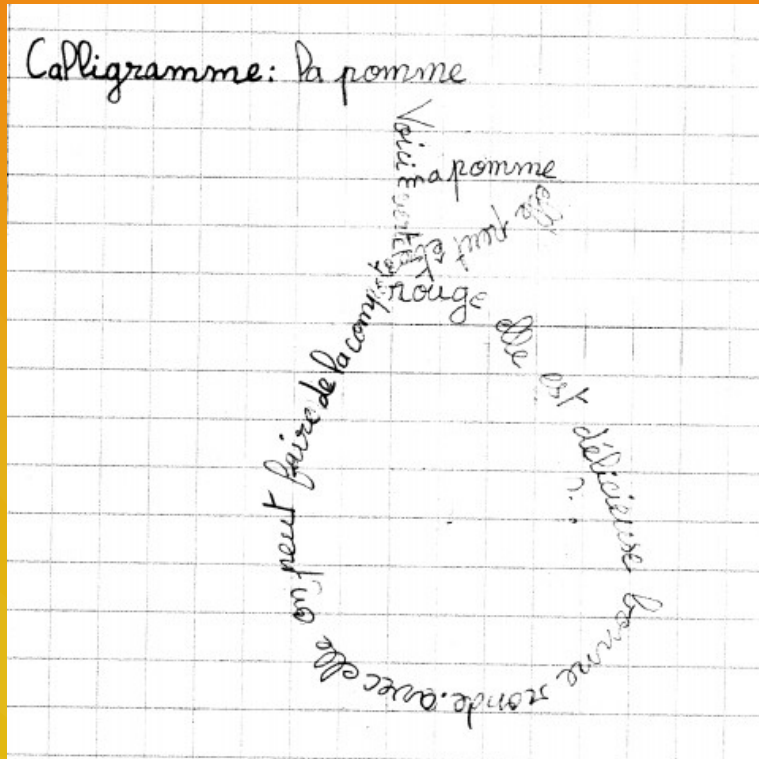 Calligramme: la pomme
Voici ma pomme
elle peut être
verte
rouge
elle est délicieuse bonne ronde. avec elle on peut faire de la compote